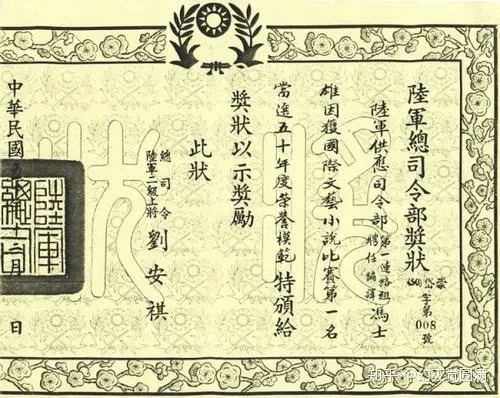 陸軍總司令部獎狀
(50)崇岱字第008號
陸軍供應司令部第一連絡組聘任編譯馮士
雄因獲國際文藝小說比賽第一名
當選五十年度榮譽模範特頒給
獎狀以示獎勵
此狀
總司令
陸軍二級上將劉安祺
中華民國五
月
日
知乎